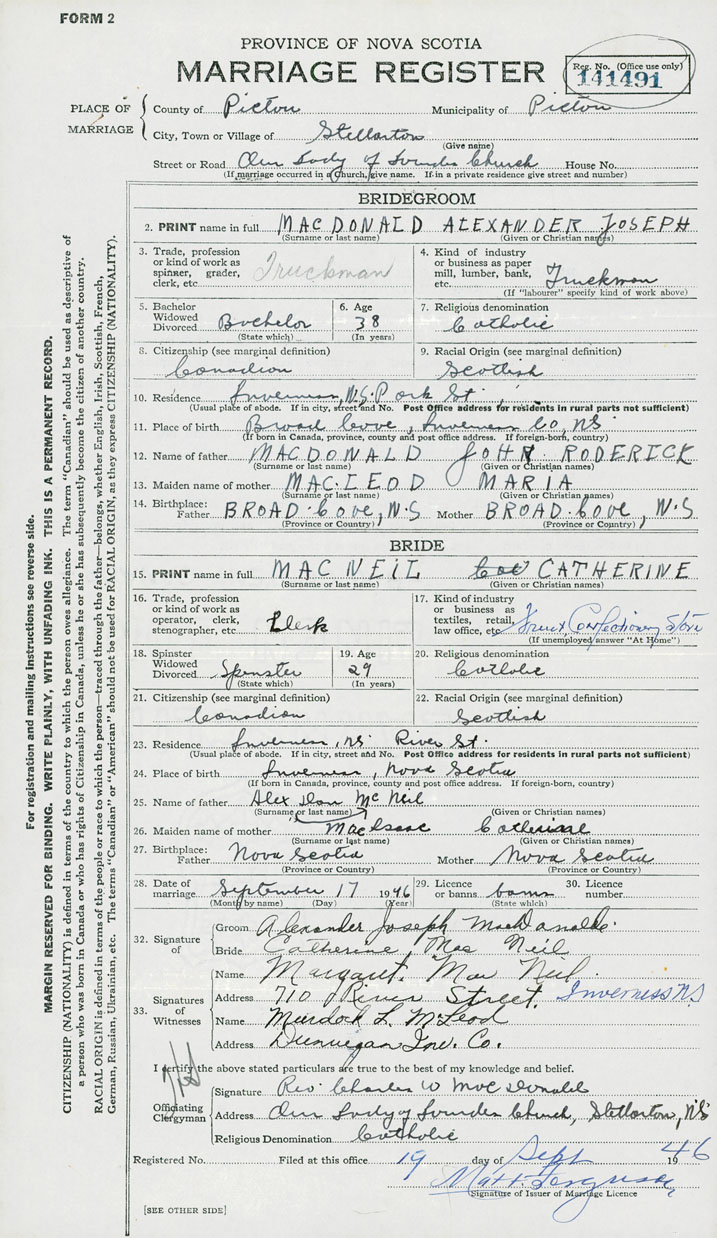 FORM 2
PROVINCE OF NOVA SCOTIA
MARRIAGE REGISTER
Reg. No. (Office use only)
141491
PLACE OF MARRIAGE
County of Pictou Municipality of Pictou
City, Town or Village of Stellarton
(Give name)
Street or Road Our Lady of Lourdes Church House No.
(If marriage occurred in a Church, give name. If in a private residence give street and number)
BRIDEGROOM
2. PRINT name in full MACDONALD ALEXANDER JOSEPH
(Surname or last name) (Given or Christian names)
3. Trade, profession or kind of work as spinner, grader, clerk, etc. Truckman
4. Kind of industry or business as paper mill, lumber, bank, etc. Truckman
(If "labourer" specify kind of work above)
5. Bachelor Widowed Divorced Bachelor
(State which)
6. Age 38
(In years)
7. Religious denomination
Catholic
8. Citizenship (see marginal definition)
Canadian
9. Racial Origin (see marginal definition)
Scottish
10. Residence Inverness, N.S. Park St.
(Usual place of abode. If in city, street and No. Post Office address for residents in rural parts not sufficient)
11. Place of birth Broad Cove, Inverness Co, NS
(If born in Canada, province, county and post office address. If foreign-born, country)
12. Name of father MACDONALD JOHN RODERICK
(Surname or last name) (Given or Christian names)
13. Maiden name of mother MACLEOD MARIA
(Surname or last name) (Given or Christian names)
14. Birthplace: Father BROAD COVE, N.S Mother BROAD COVE, N.S
(Province or Country) (Province or Country)
BRIDE
15. PRINT name in full MAC NEIL CATHERINE
(Surname or last name) (Given or Christian names)
16. Trade, profession or kind of work as operator, clerk, stenographer, etc. Clerk
17. Kind of industry or business as textiles, retail, law office, etc. Fruit & Confectionery Store
(If unemployed answer "At Home")
18. Spinster Widowed Divorced Spinster
(State which)
19. Age 29
(In years)
20. Religious denomination
Catholic
21. Citizenship (see marginal definition)
Canadian
22. Racial Origin (see marginal definition)
Scottish
23. Residence Inverness, NS River St.
(Usual place of abode. If in city, street and No. Post Office address for residents in rural parts not sufficient)
24. Place of birth Inverness, Nova Scotia
(If born in Canada, province, county and post office address. If foreign-born, country)
25. Name of father Alex Dan McNeil
(Surname or last name) (Given or Christian names)
26. Maiden name of mother MacIsaac Catherine
(Surname or last name) (Given or Christian names)
27. Birthplace: Father Nova Scotia Mother Nova Scotia
(Province or Country) (Province or Country)
28. Date of marriage September 17 1946
(Month by name) (Day) (Year)
29. Licence or banns banns
(State which)
30. Licence number
32. Signature of
Groom Alexander Joseph MacDonald
Bride Catherine Mac Neil
33. Signatures of Witnesses
Name Margaret Mac Neil
Address 710 River Street, Inverness NS
Name Murdock L. McLeod
Address Dunvegan Inv. Co.
I certify the above stated particulars are true to the best of my knowledge and belief.
Officiating Clergyman
Signature Rev. Charles W MacDonald
Address Our Lady of Lourdes Church, Stellarton, NS
Religious Denomination Catholic
Registered No. Filed at this office 19 day of Sept 1946
Matt. Ferguson
Signature of Issuer of Marriage Licence
[SEE OTHER SIDE]
For registration and mailing instructions see reverse side.
MARGIN RESERVED FOR BINDING. WRITE PLAINLY, WITH UNFADING INK. THIS IS A PERMANENT RECORD.
CITIZENSHIP (NATIONALITY) is defined in terms of the country to which the person owes allegiance. The term "Canadian" should be used as descriptive of
a person who was born in Canada or who has rights of Citizenship in Canada, unless he or she has subsequently become the citizen of another country.
RACIAL ORIGIN is defined in terms of the people or race to which the person—traced through the father—belongs, whether English, Irish, Scottish, French,
German, Russian, Ukrainian, etc. The terms "Canadian" or "American" should not be used for RACIAL ORIGIN, as they express CITIZENSHIP (NATIONALITY).